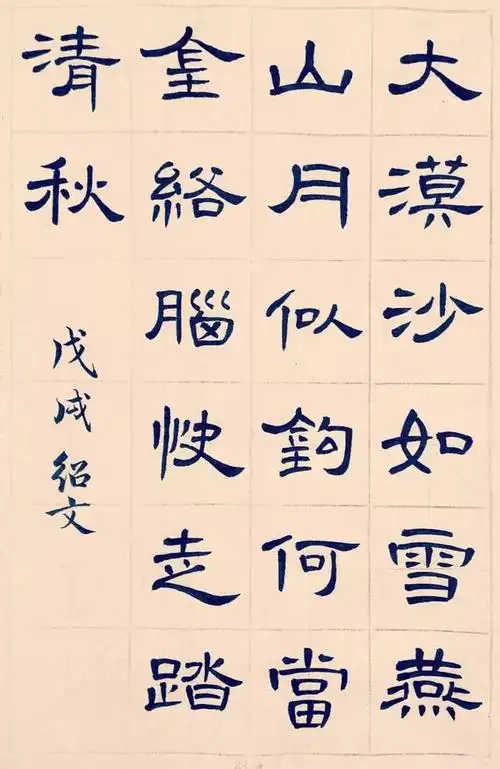 大漠沙如雪燕
山月似鉤何當
金絡腦快走踏
清秋
戊戌紹文